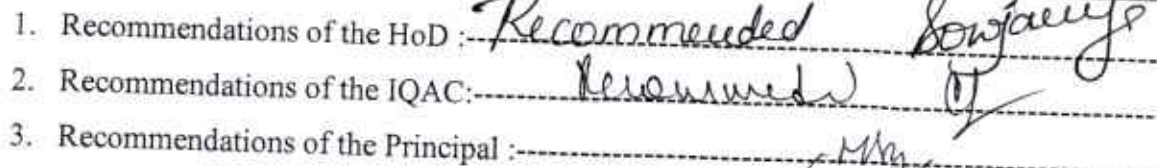 1. Recommendations of the HoD :- Recommended Sowjanya
2. Recommendations of the IQAC:- Recommended
3. Recommendations of the Principal :-